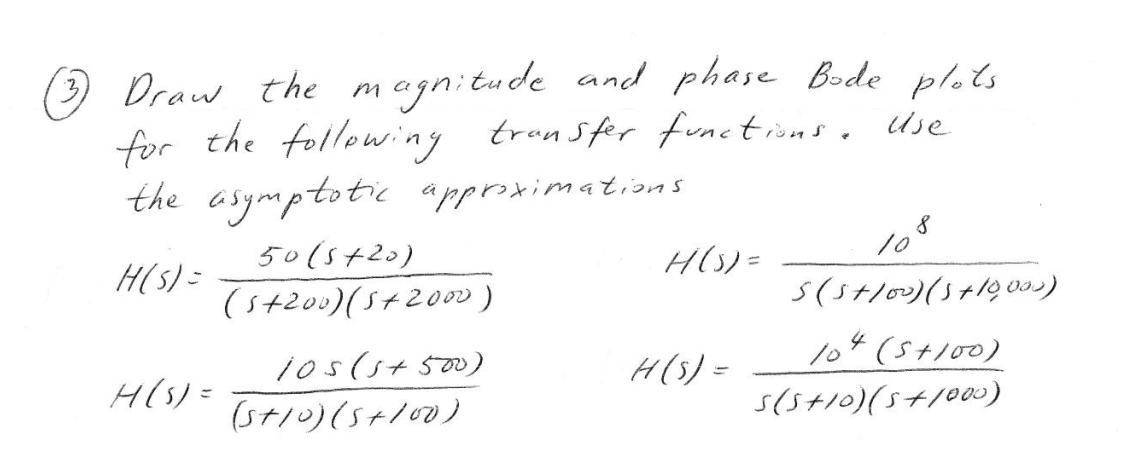 ③ Draw the magnitude and phase Bode plots
for the following transfer functions. Use
the asymptotic approximations
H(s) = 50(s+20) / (s+200)(s+2000)
H(s) = 10^8 / s(s+100)(s+10,000)
H(s) = 10s(s+500) / (s+10)(s+100)
H(s) = 10^4 (s+100) / s(s+10)(s+1000)